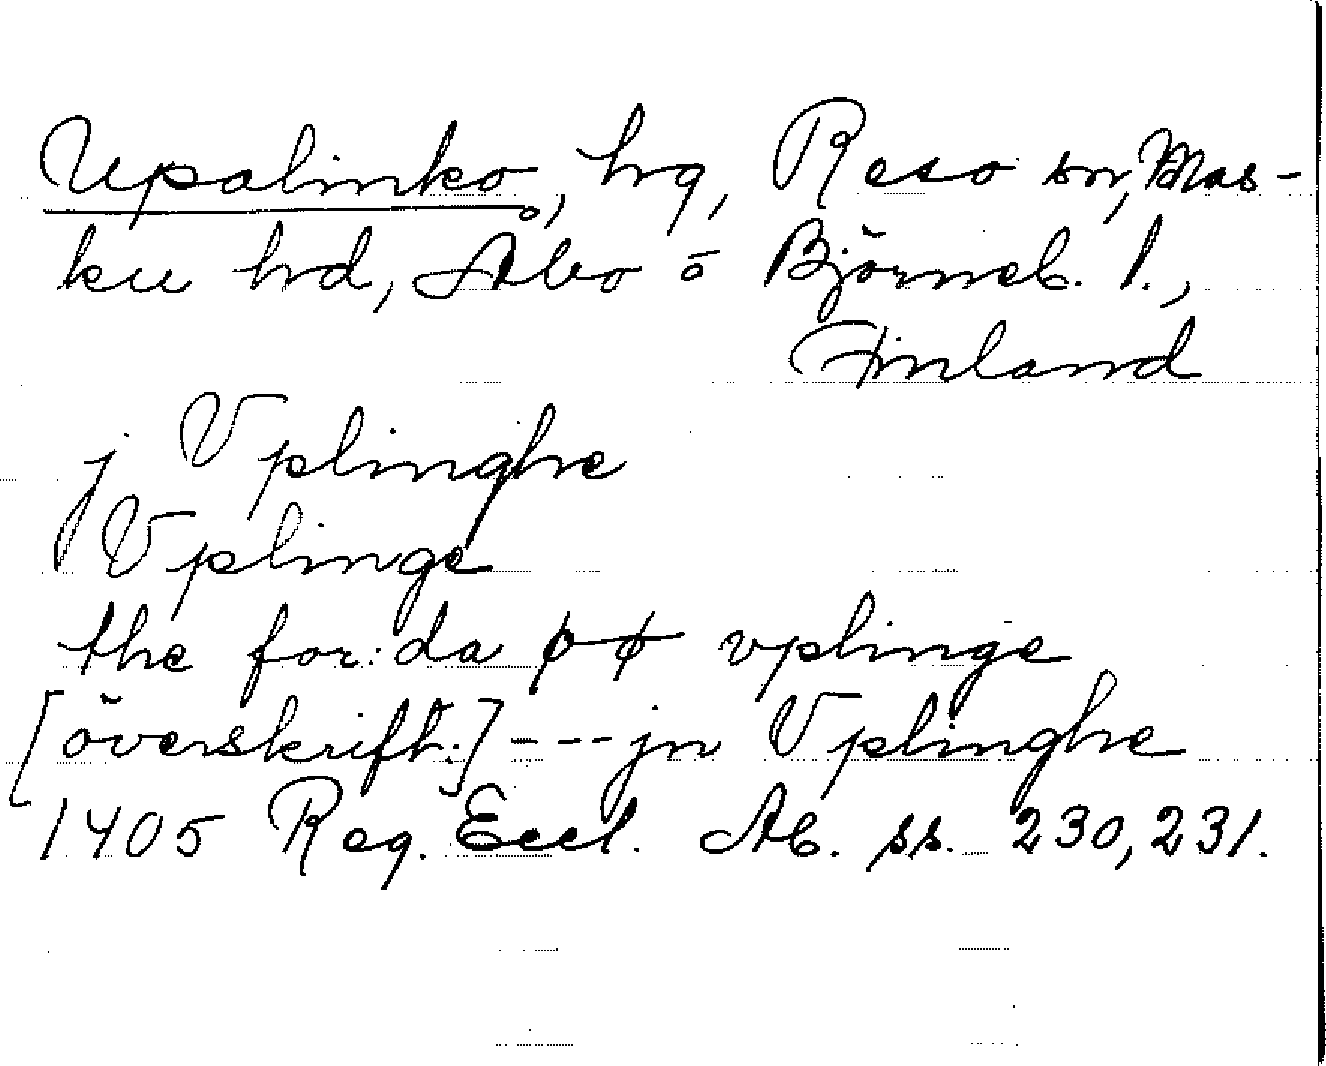 Upalinko, hg, Reso sn, Mas-
ku hd, Åbo o Björneb. l.,
Finland
j Vplinghe
Vplinge
the for: da vplinge
[överskift.] --- jn Vplinghe
1405 Reg. Eccl. Ab. ss. 230, 231.